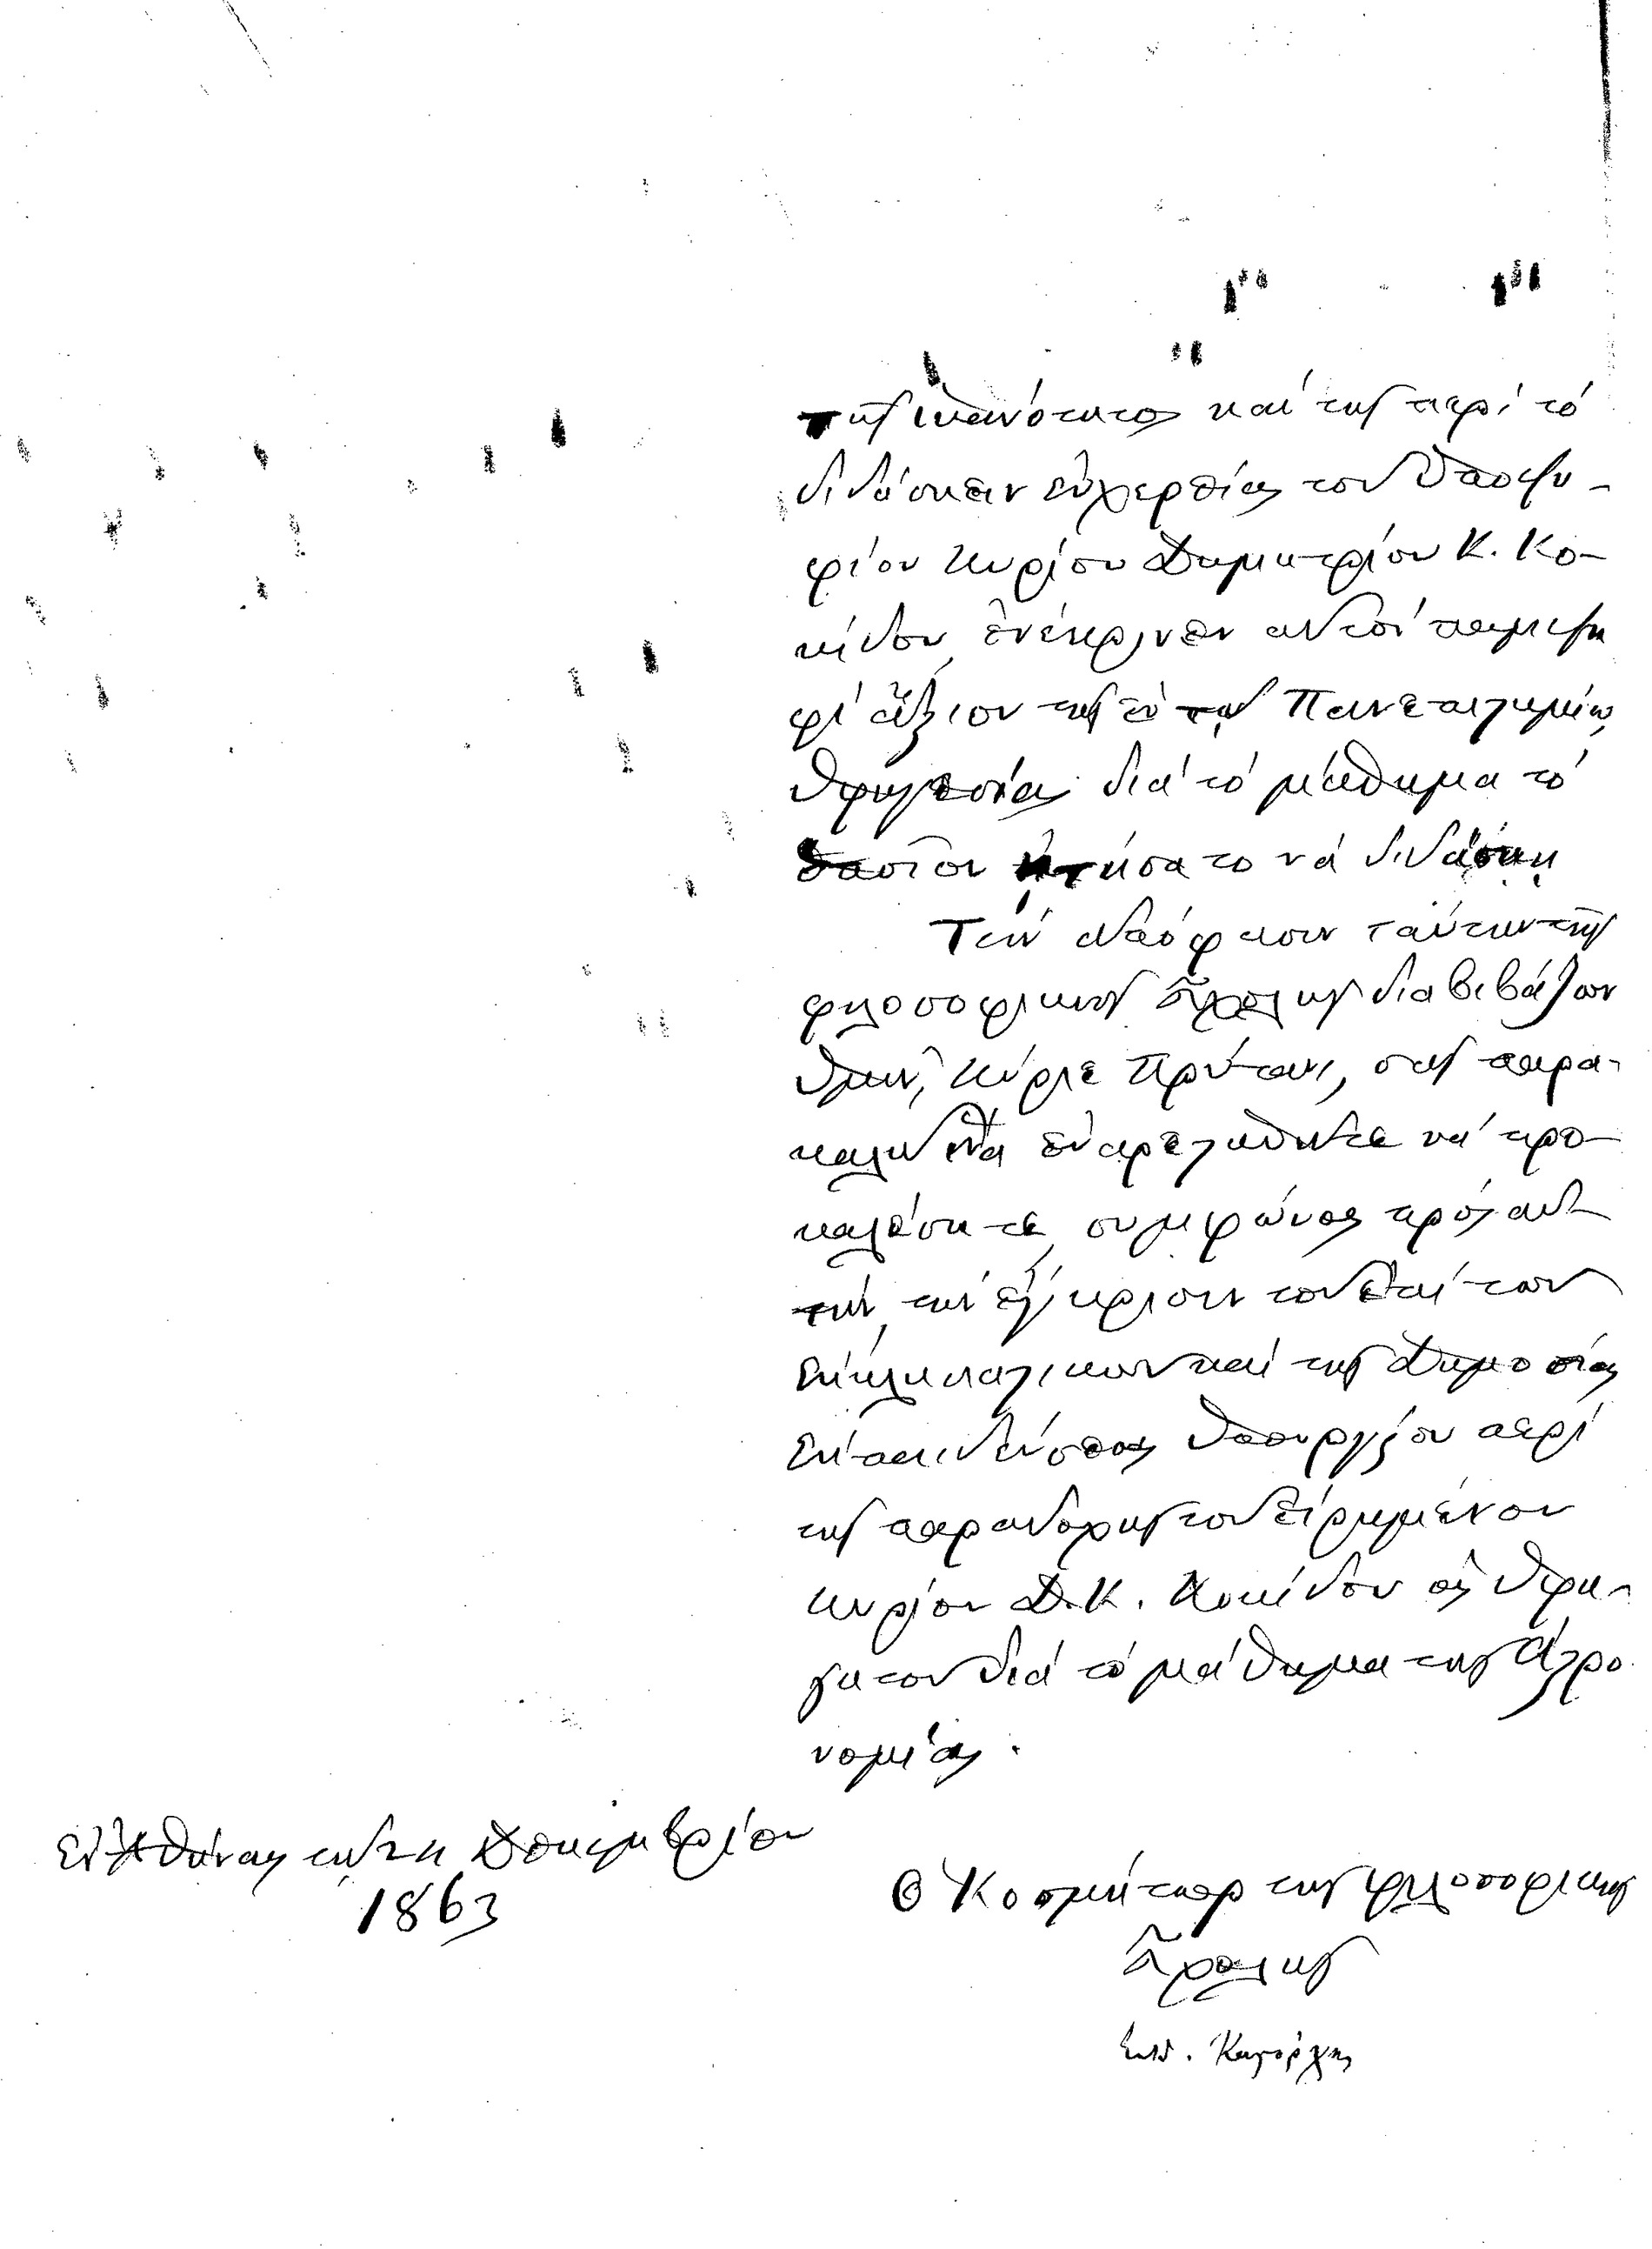 τῆς ἱκανότητος καὶ τῆς περὶ τὸ
διδάσκειν εὐχερείας τοῦ ὑποψη-
φίου Κυρίου Δημητρίου Κ. Κο-
κίδου, ἐνέκρινεν αὐτὸν παμψη
φὶ ἄξιον τῆς ἐν τῷ Πανεπιστημίῳ
ὑφηγεσίας διὰ τὸ μάθημα τὸ
ὁποῖον ᾐτήσατο νὰ διδάσκῃ
Τὴν ἀπόφασιν ταύτην τῆς
φιλοσοφικῆς Σχολῆς διαβιβάζων
ὑμῖν, Κύριε Πρύτανι, σᾶς παρα-
καλῶ νὰ εὐαρεστηθῆτε νὰ προ-
καλέσητε, συμφώνως πρὸς αὐ-
τήν, τὴν ἔγκρισιν τοῦ ἐπὶ τῶν
Ἐκκλησιαστικῶν καὶ τῆς Δημοσίας
Ἐκπαιδεύσεως Ὑπουργείου περὶ
τῆς παραδοχῆς τοῦ εἰρημένου
Κυρίου Δ. Κ. Κοκίδου ὡς ὑφη-
γητοῦ διὰ τὸ μάθημα τῆς Ἀστρο
νομίας.
Ἐν Ἀθήναις τῇ 24 Δεκεμβρίου
1863
Ὁ Κοσμήτωρ τῆς φιλοσοφικῆς
Σχολῆς
Εὐθ. Καστόρχης